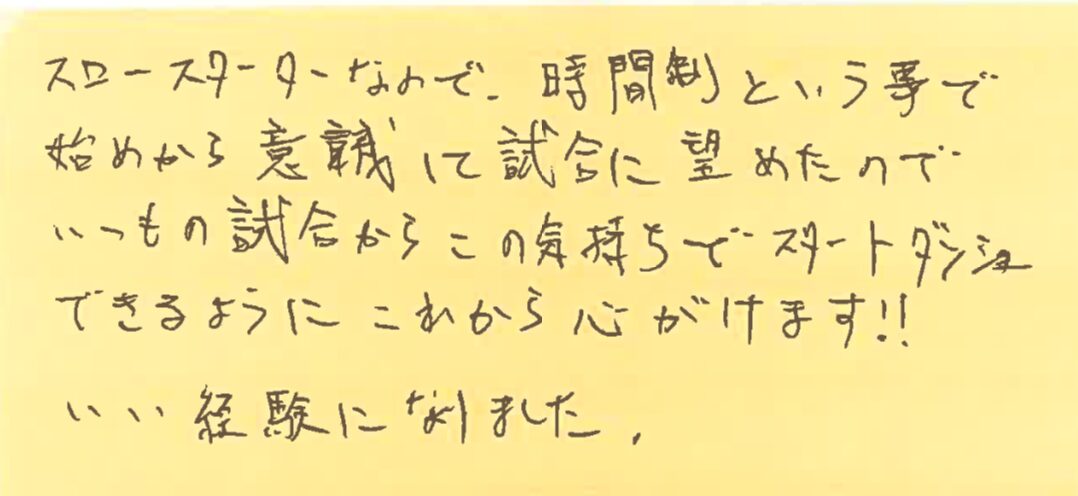 スロースターターなので、時間制という事で
始めから意識して試合に望めたので
いつもの試合からこの気持ちでスタートダッシュ
できるようにこれから心がけます!!
いい経験になりました。